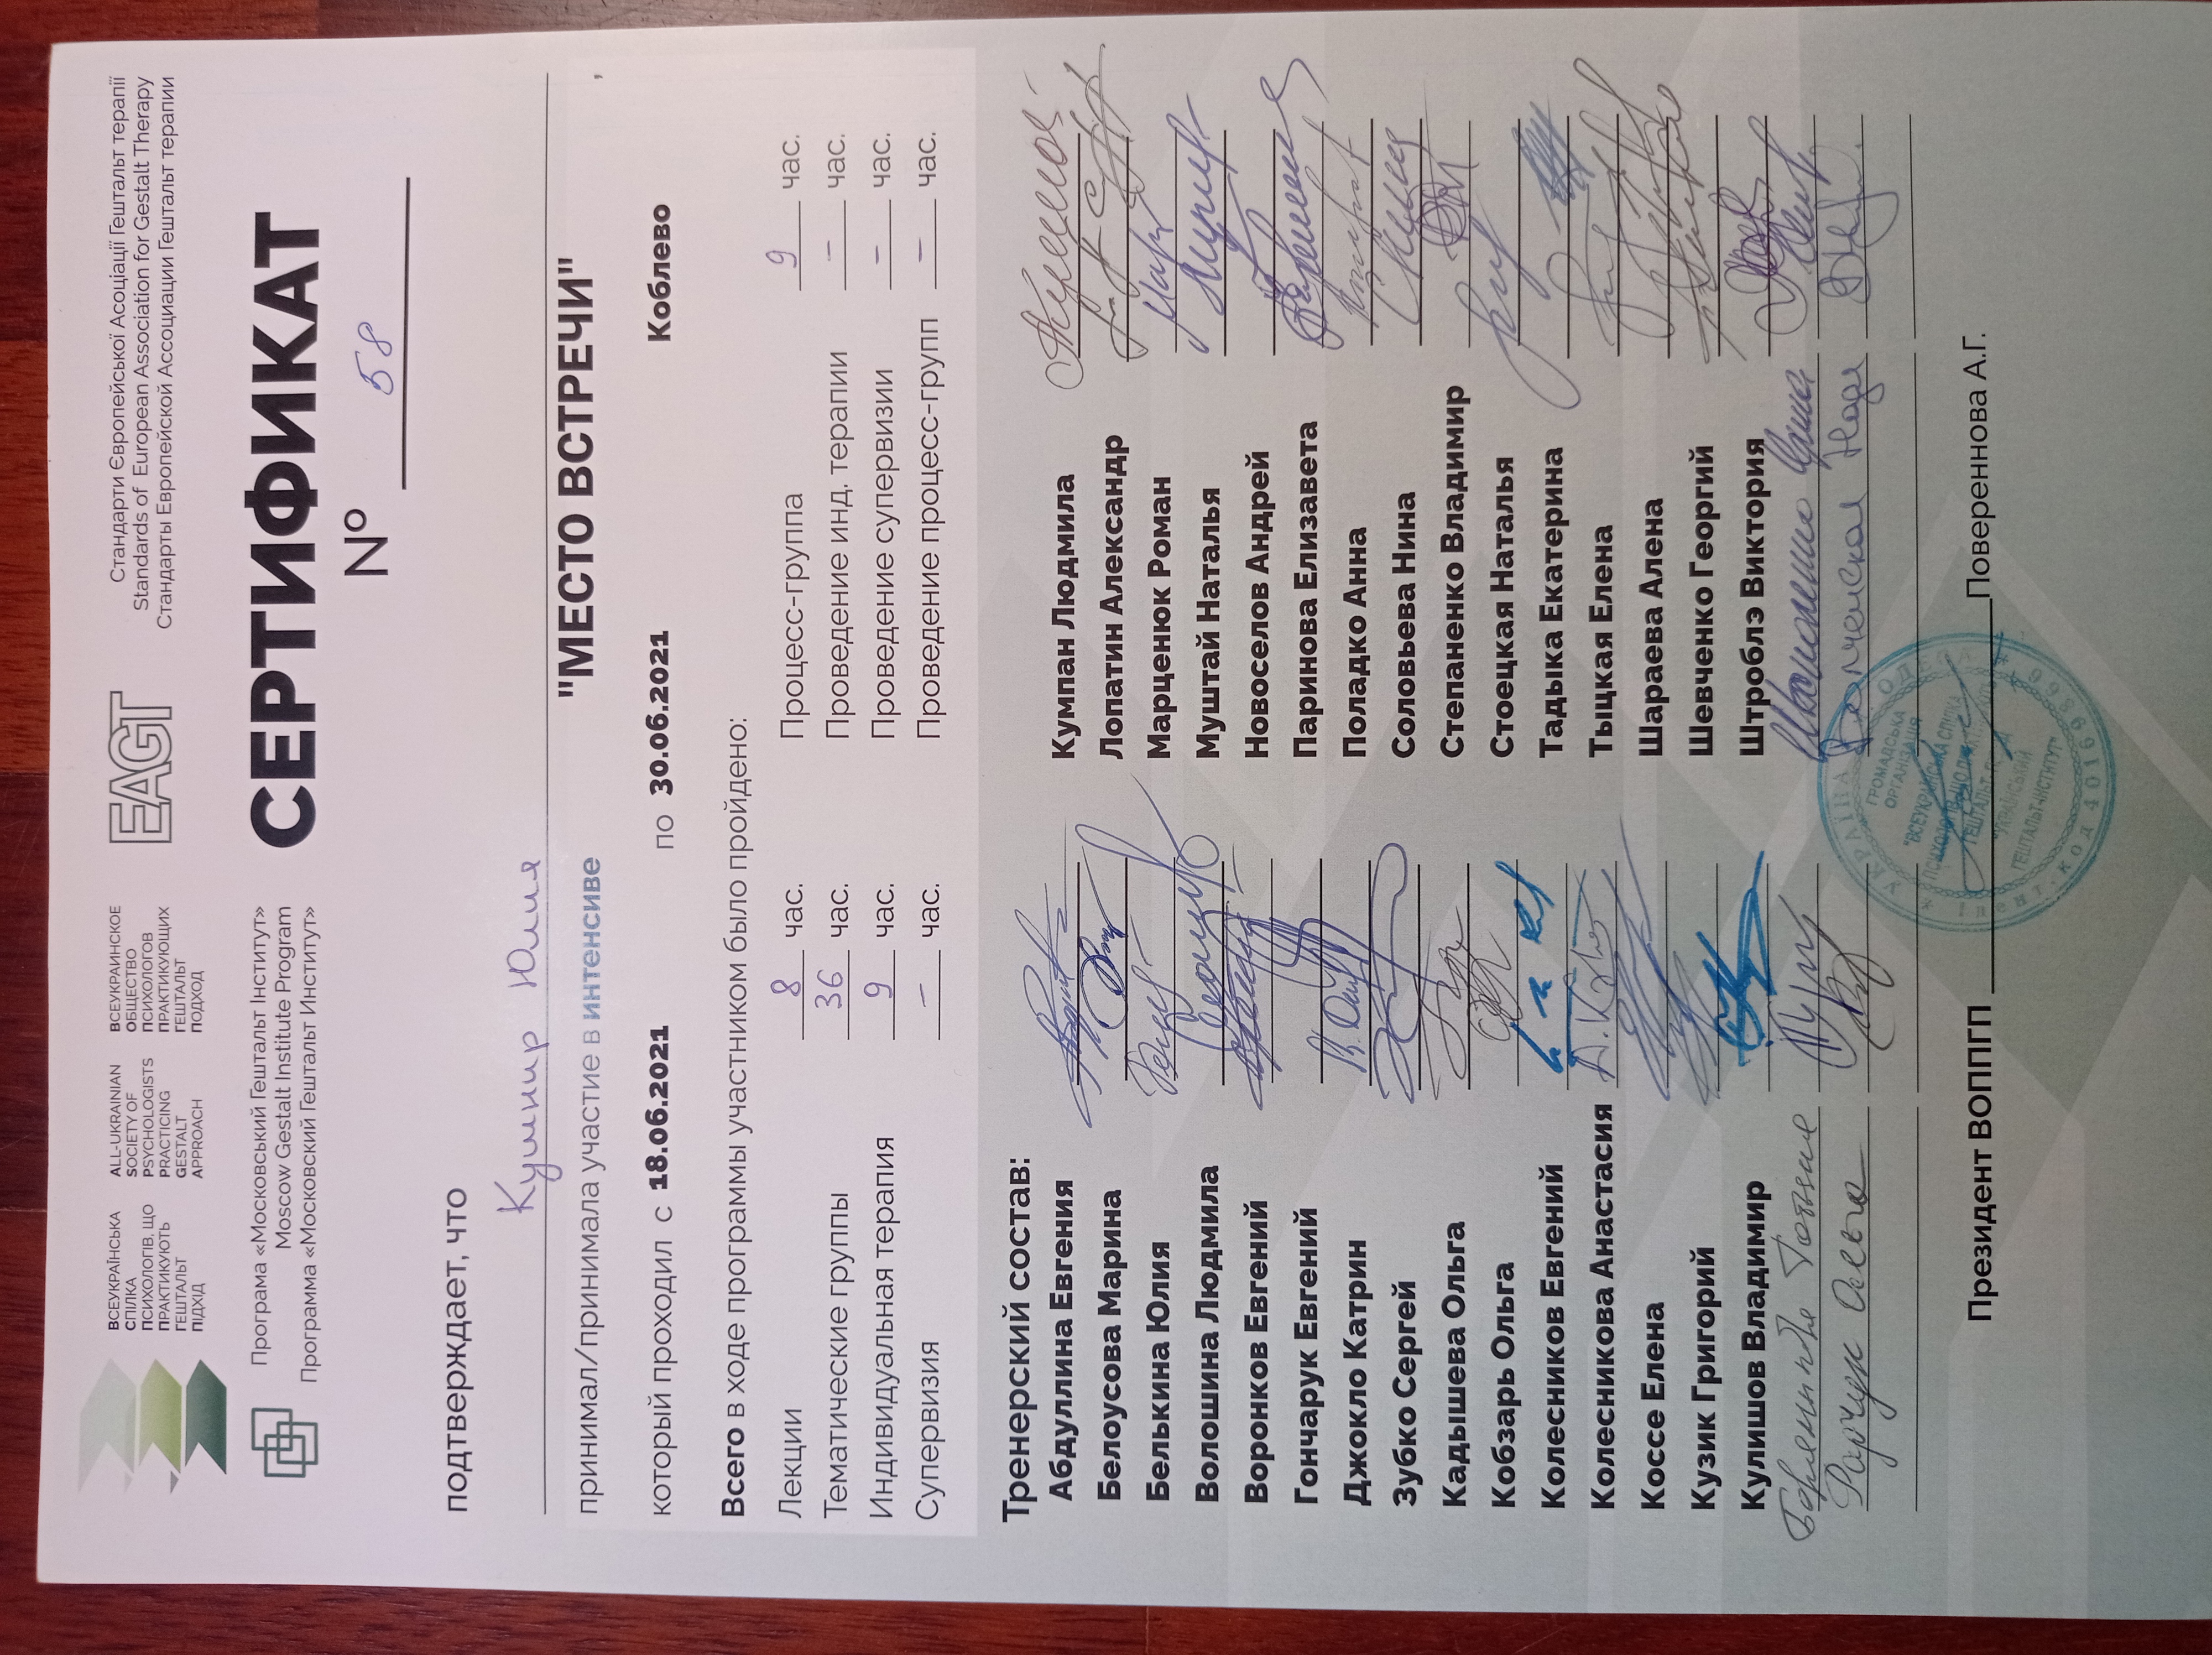 ВСЕУКРАЇНСЬКА
СПІЛКА
ПСИХОЛОГІВ, ЩО
ПРАКТИКУЮТЬ
ГЕШТАЛЬТ
ПІДХІД
ALL-UKRAINIAN
SOCIETY OF
PSYCHOLOGISTS
PRACTICING
GESTALT
APPROACH
ВСЕУКРАИНСКОЕ
ОБЩЕСТВО
ПСИХОЛОГОВ
ПРАКТИКУЮЩИХ
ГЕШТАЛЬТ
ПОДХОД
EAGT
Стандарти Європейської Асоціації Гештальт терапії
Standards of European Association for Gestalt Therapy
Стандарты Европейской Ассоциации Гештальт терапии
Програма «Московський Гештальт Інститут»
Moscow Gestalt Institute Program
Программа «Московский Гештальт Институт»
СЕРТИФИКАТ
№ 58
подтверждает, что
Кушнир Юлия
принимал/принимала участие в интенсиве "МЕСТО ВСТРЕЧИ",
который проходил с 18.06.2021 по 30.06.2021 Коблево
Всего в ходе программы участником было пройдено:
Лекции 8 час. Процесс-группа 9 час.
Тематические группы 36 час. Проведение инд. терапии – час.
Индивидуальная терапия 9 час. Проведение супервизии – час.
Супервизия – час. Проведение процесс-групп – час.
Тренерский состав:
Абдуллина Евгения Кумпан Людмила
Белоусова Марина Лопатин Александр
Белькина Юлия Марценюк Роман
Волошина Людмила Муштай Наталья
Воронков Евгений Новоселов Андрей
Гончарук Евгений Паринова Елизавета
Джокло Катрин Поладко Анна
Зубко Сергей Соловьева Нина
Кадышева Ольга Степаненко Владимир
Кобзарь Ольга Стоецкая Наталья
Колесников Евгений Тадыка Екатерина
Колесникова Анастасия Тыцкая Елена
Коссе Елена Шараева Алена
Кузик Григорий Шевченко Георгий
Кулишов Владимир Штроблэ Виктория
Президент ВОППГП Повереннова А.Г.
УКРАЇНА
ГРОМАДСЬКА
ОРГАНІЗАЦІЯ
"ВСЕУКРАЇНСЬКА СПІЛКА
"УКРАЇНСЬКИЙ
ГЕШТАЛЬТ-ІНСТИТУТ"